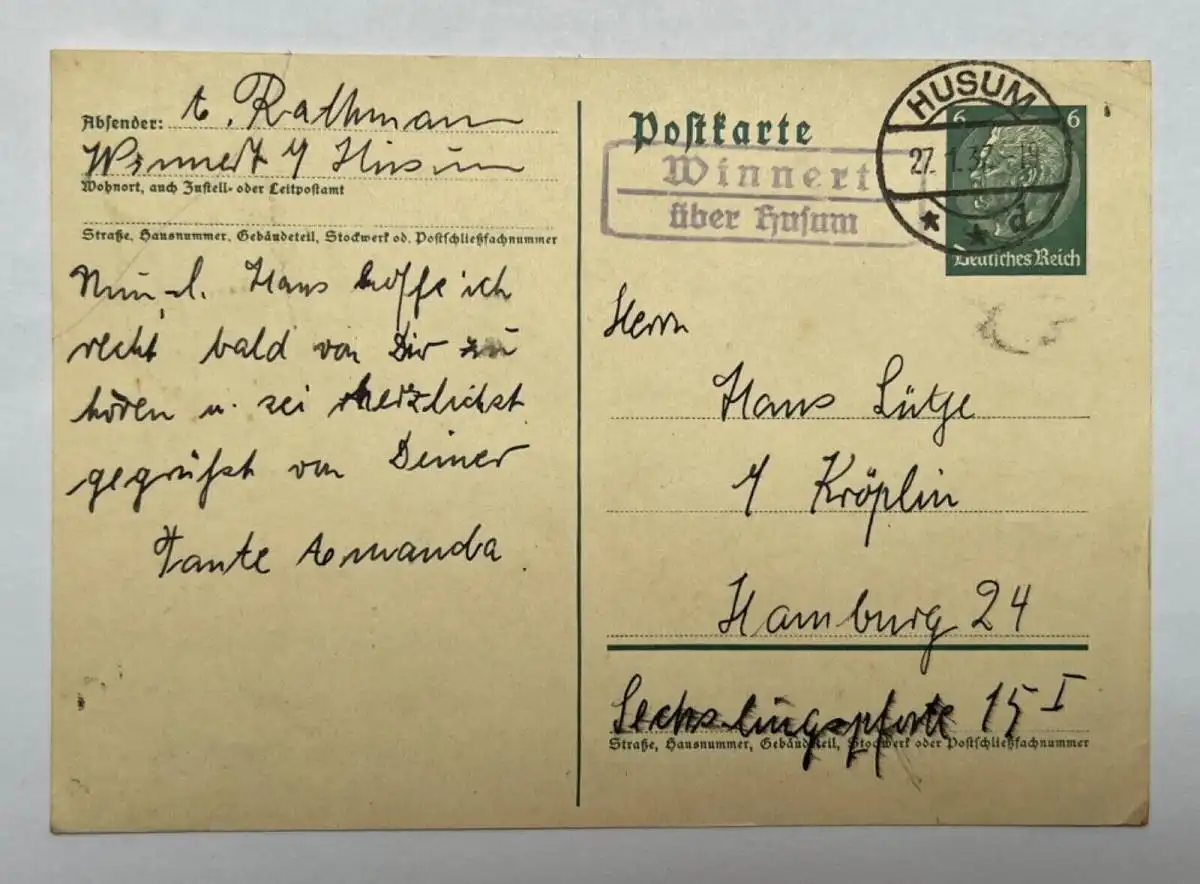 Absender: A. Rathmann
Winnert / Husum
Wohnort, auch Zustell- oder Leitpostamt
Straße, Hausnummer, Gebäudeteil, Stockwerk od. Postschließfachnummer
Nun l. Hans hoffe ich
recht bald von Dir zu
hören u. sei herzlichst
gegrüßt von Deiner
Tante Amanda.
Postkarte
Winnert
über Husum
HUSUM
27. 1.37. -19
* * d
6 6
Deutsches Reich
Herrn
Hans Lütje
Kröplin
Hamburg 24
Sechslingspforte 15 I
Straße, Hausnummer, Gebäudeteil, Stockwerk oder Postschließfachnummer